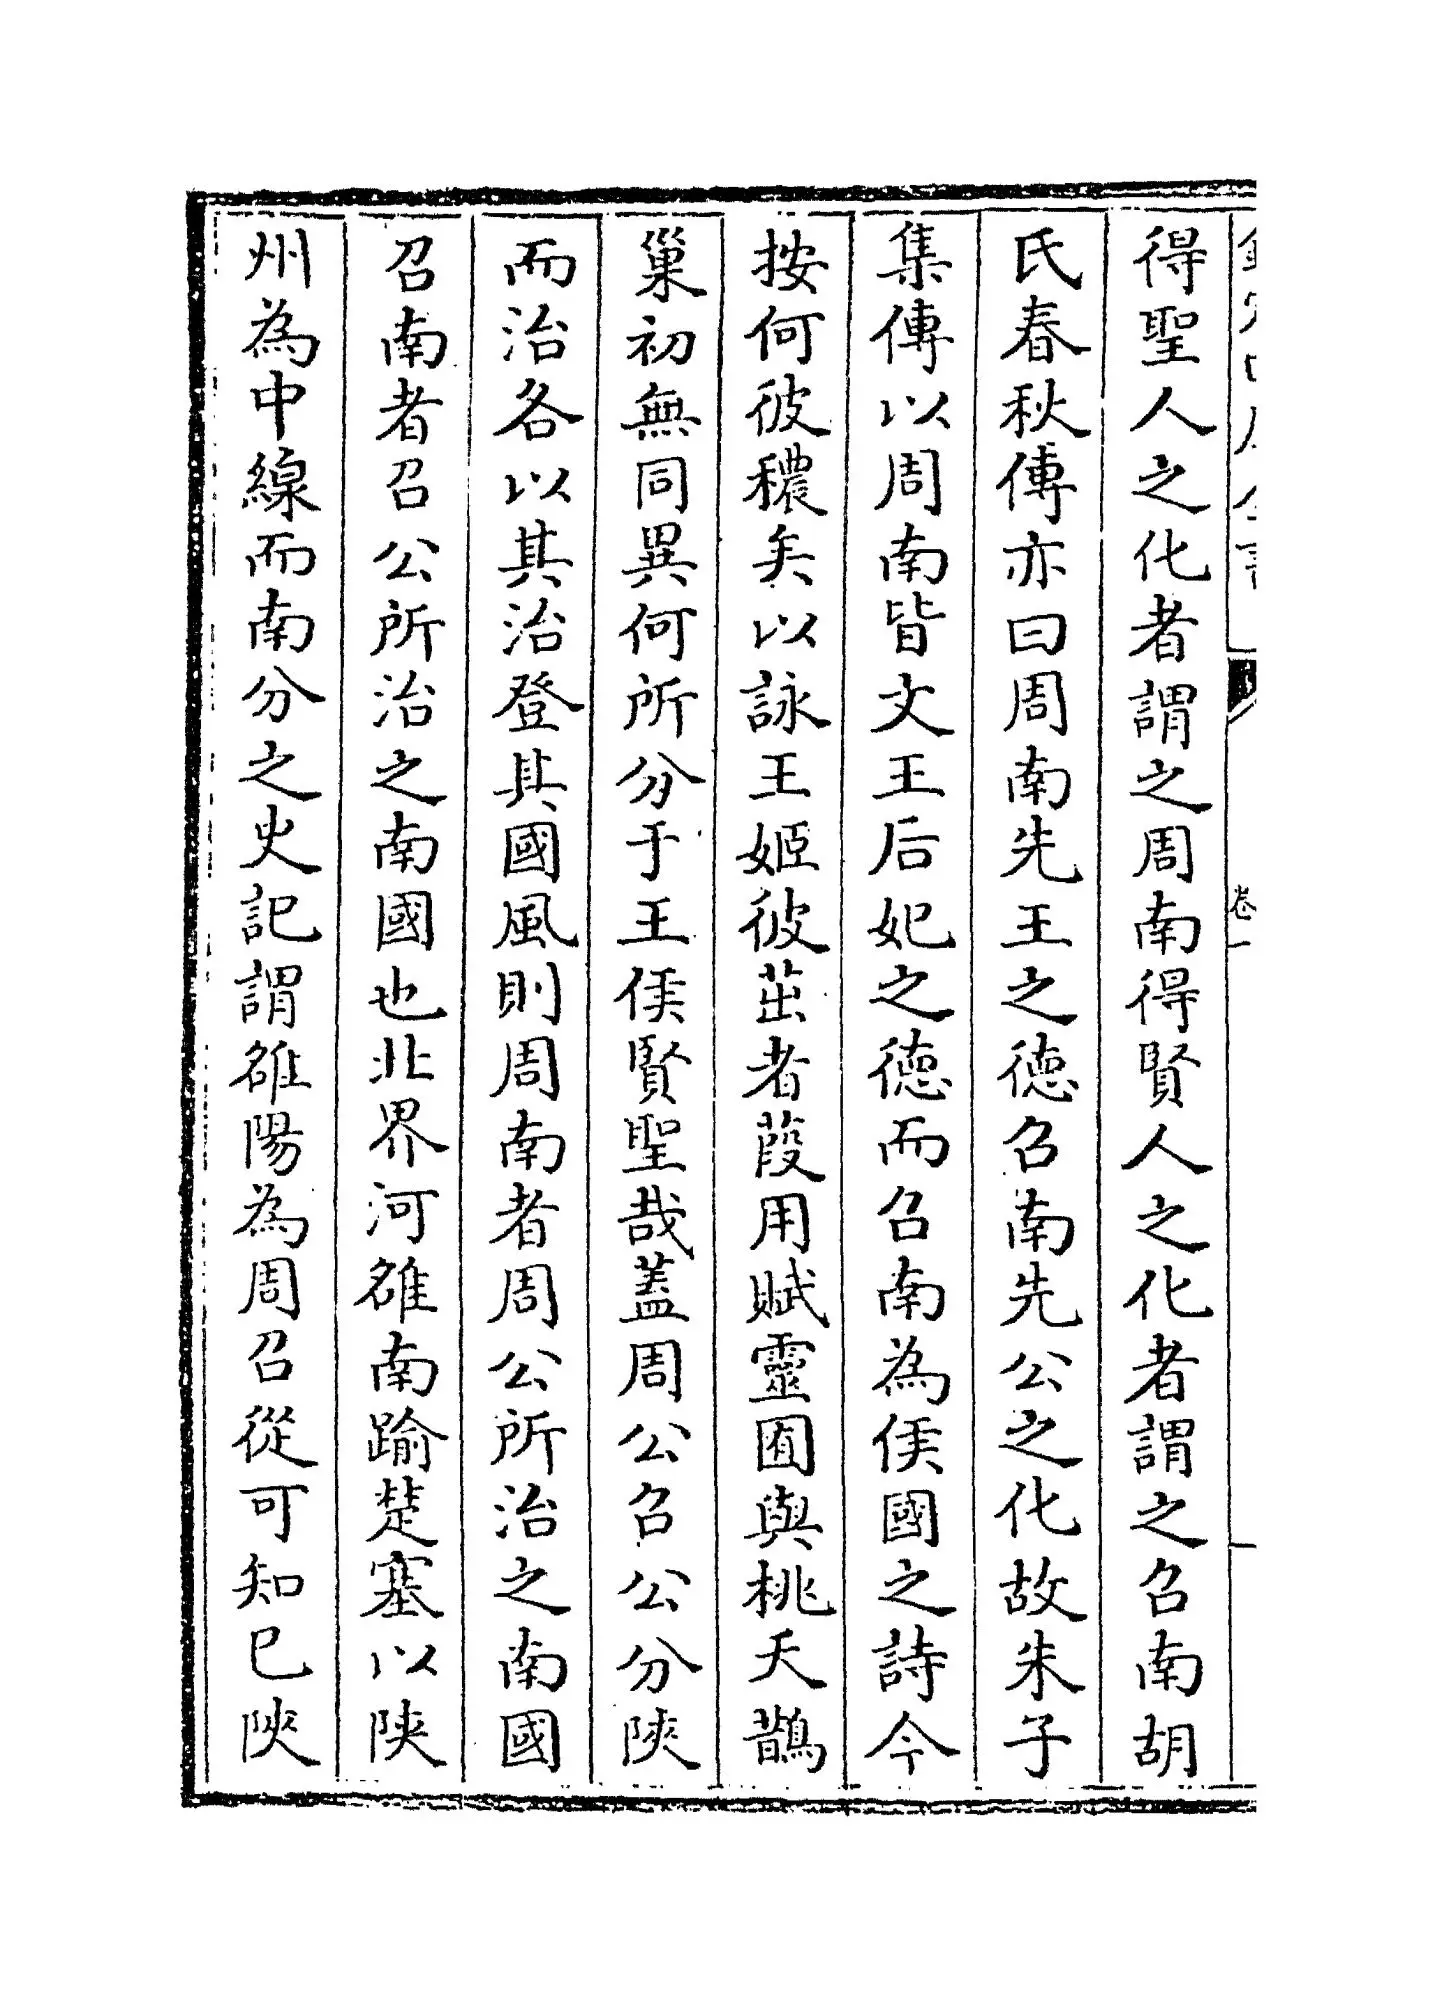 得聖人之化者謂之周南得賢人之化者謂之召南胡
氏春秋傳亦曰周南先王之德召南先公之化故朱子
集傳以周南皆文王后妃之德而召南為侯國之詩今
按何彼穠矣以詠王姬彼茁者葭用賦靈囿與桃夭鵲
巢初無同異何所分于王侯賢聖哉蓋周公召公分陜
而治各以其治登其國風則周南者周公所治之南國
召南者召公所治之南國也北界河雒南踰楚塞以陜
州為中線而南分之史記謂雒陽為周召從可知已陜
卷一